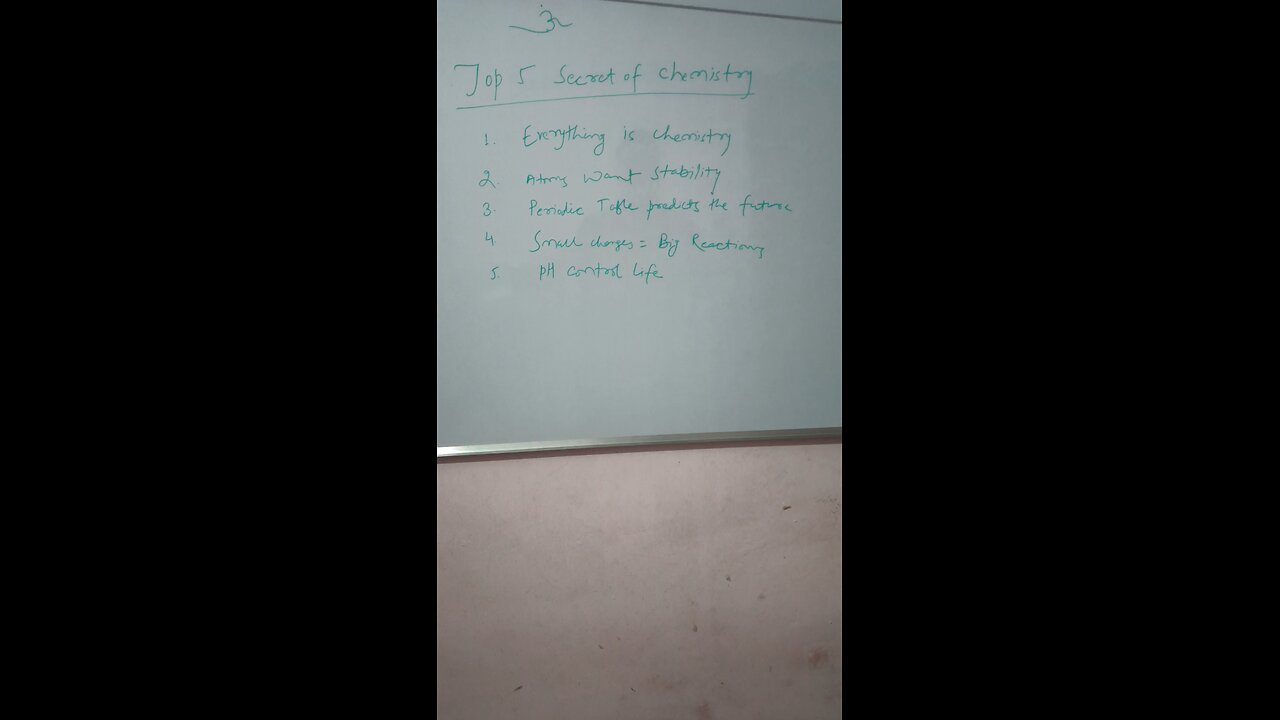 ॐ
Top 5 Secret of chemistry
1. Everything is chemistry
2. Atoms want stability
3. Periodic Table predicts the future
4. Small changes = Big Reactions
5. pH control life